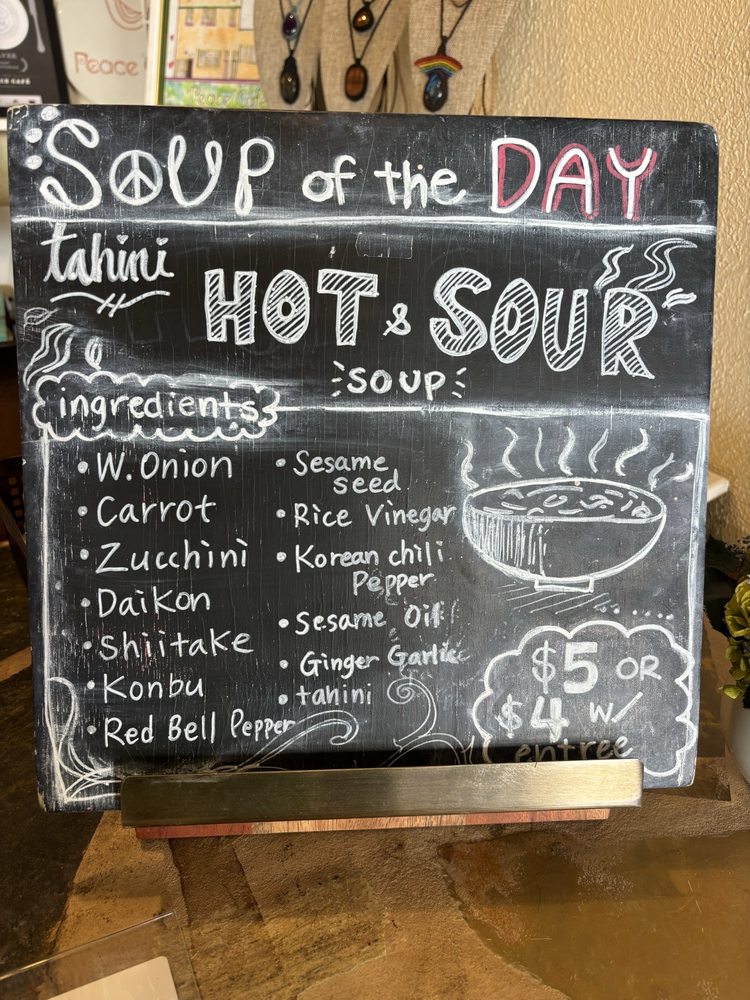 Peace
Peace
SOUP of the DAY
tahini
HOT & SOUR
SOUP
ingredients
• W. Onion
• Carrot
• Zucchini
• Daikon
• Shiitake
• Konbu
• Red Bell Pepper
• Sesame
seed
• Rice Vinegar
• Korean chili
Pepper
• Sesame Oil
• Ginger Garlic
• tahini
$5 OR
$4 W/
entree